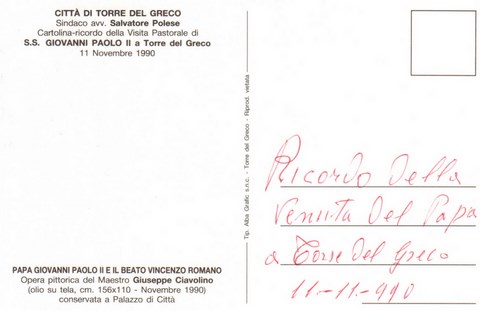 CITTÀ DI TORRE DEL GRECO
Sindaco avv. Salvatore Polese
Cartolina-ricordo della Visita Pastorale di
S.S. GIOVANNI PAOLO II a Torre del Greco
11 Novembre 1990
PAPA GIOVANNI PAOLO II E IL BEATO VINCENZO ROMANO
Opera pittorica del Maestro Giuseppe Ciavolino
(olio su tela, cm. 156x110 - Novembre 1990)
conservata a Palazzo di Città
Tip. Alba Grafic s.n.c. - Torre del Greco - Riprod. vietata
Ricordo Della
Venuta Del Papa
a Torre del Greco
11-11-990